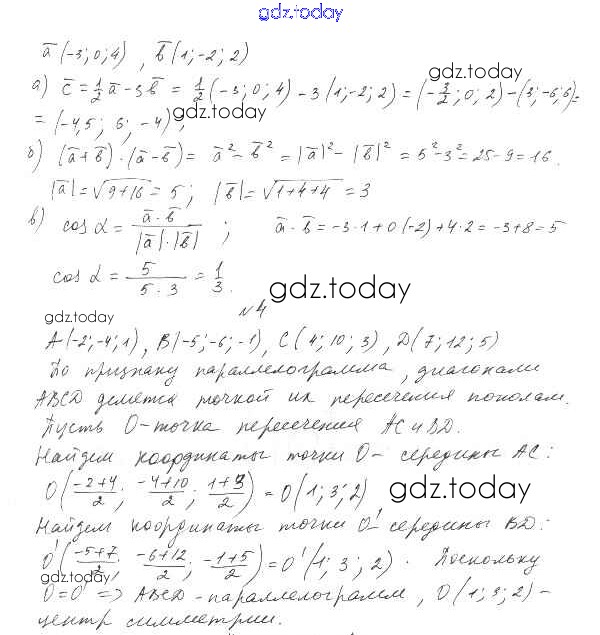 gdz.today
a̅(-3; 0; 4), b̅(1; -2; 2)
gdz.today
а) c̅ = 1/2 a̅ - 3b̅ = 1/2 (-3; 0; 4) - 3(1; -2; 2) = (-3/2; 0; 2) - (3; -6; 6) =
= (-4,5; 6; -4);
gdz.today
б) (a̅+b̅)·(a̅-b̅) = a̅² - b̅² = |a̅|² - |b̅|² = 5² - 3² = 25 - 9 = 16.
|a̅| = √9+16 = 5; |b̅| = √1+4+4 = 3
в) cos α = a̅·b̅ / |a̅|·|b̅| ; a̅·b̅ = -3·1+0(-2)+4·2 = -3+8 = 5
cos α = 5 / 5·3 = 1/3.
gdz.today
gdz.today
№4
A(-2; -4; 1), B(-5; -6; -1), C(4; 10; 3), D(7; 12; 5)
По признаку параллелограмма, диагонали
ABCD делятся точкой их пересечения пополам.
Пусть O-точка пересечения AC и BD.
Найдем координаты точки O- середины AC:
O(-2+4/2; -4+10/2; 1+3/2) = O(1; 3; 2)
gdz.today
Найдем координаты точки O' середины BD:
O'(-5+7/2; -6+12/2; -1+5/2) = O'(1; 3; 2). Поскольку
gdz.today
O=O' => ABCD - параллелограмм, O(1; 3; 2) -
центр симметрии.